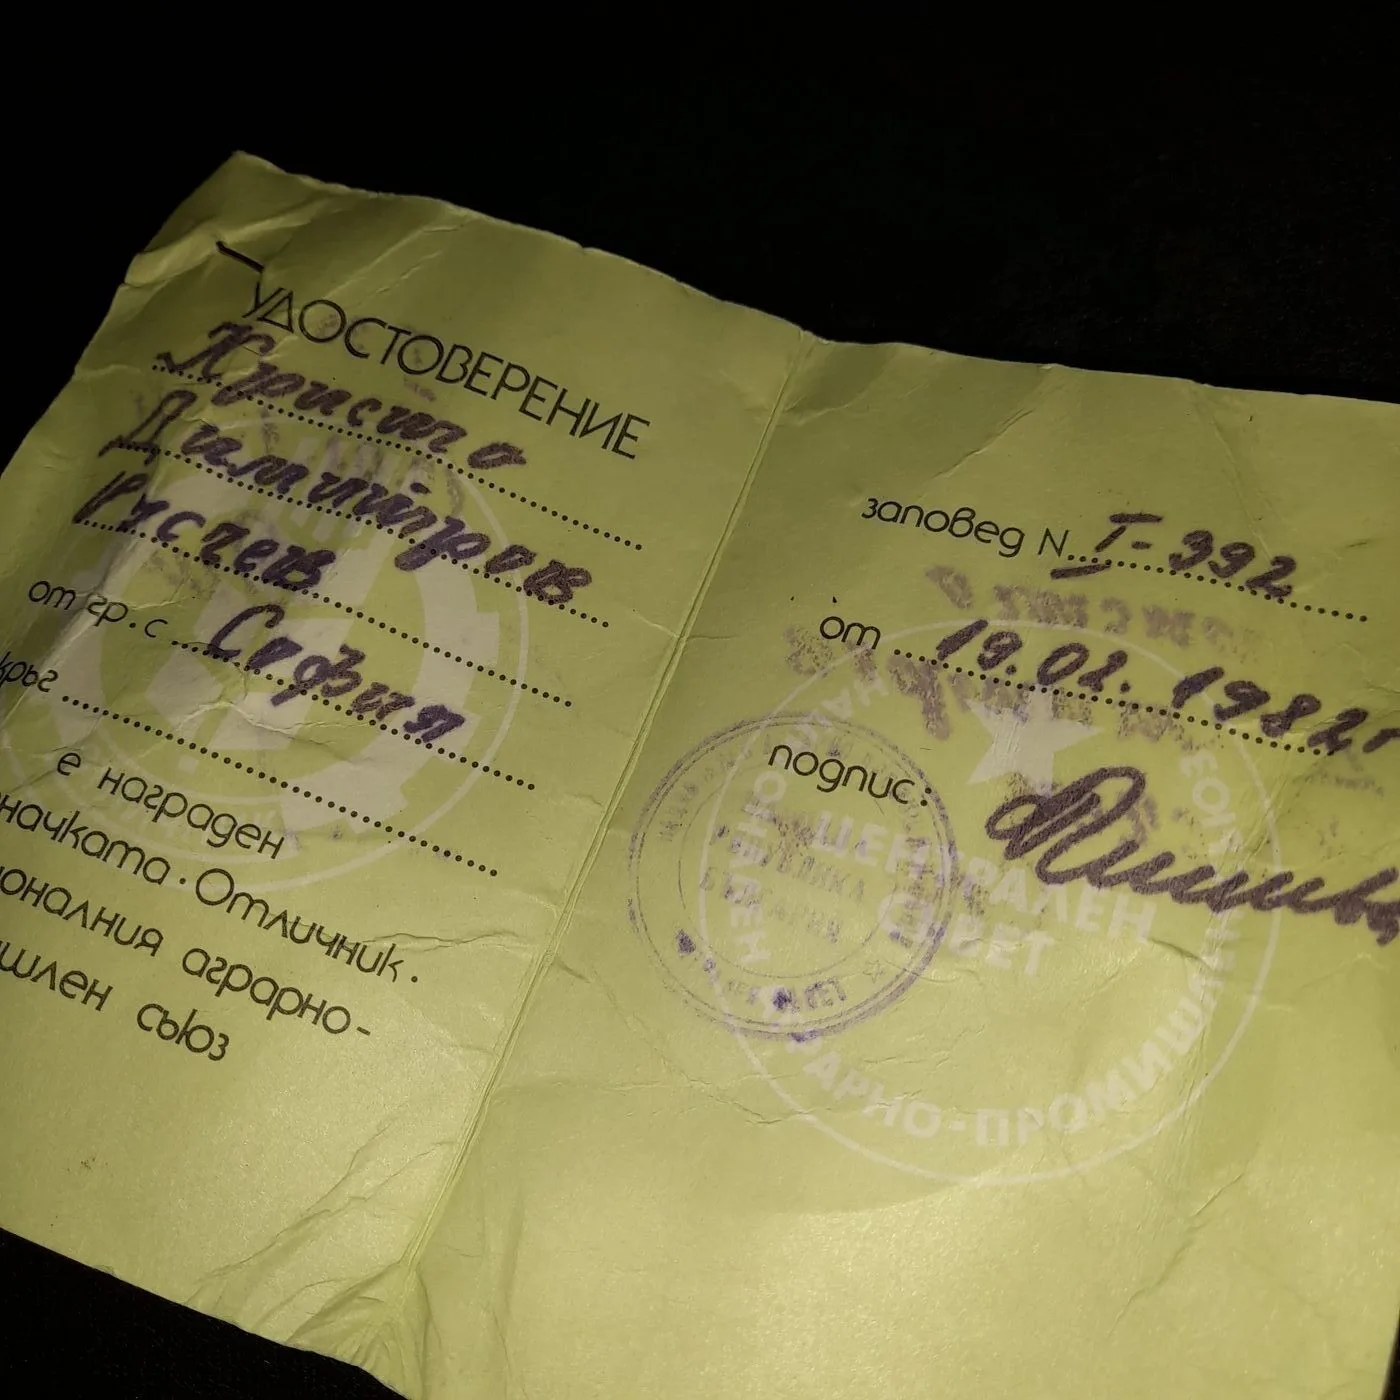 УДОСТОВЕРЕНИЕ
Христо
Димитров
Расчев
от гр. с. София
кръг
е награден
значката. Отличник.
оналния аграрно-
шлен съюз
заповед N I-392
от 19.02.1982 г
подпис:
ЦЕНТРАЛЕН
СЪВЕТ
АРНО-ПРОМИШЛ